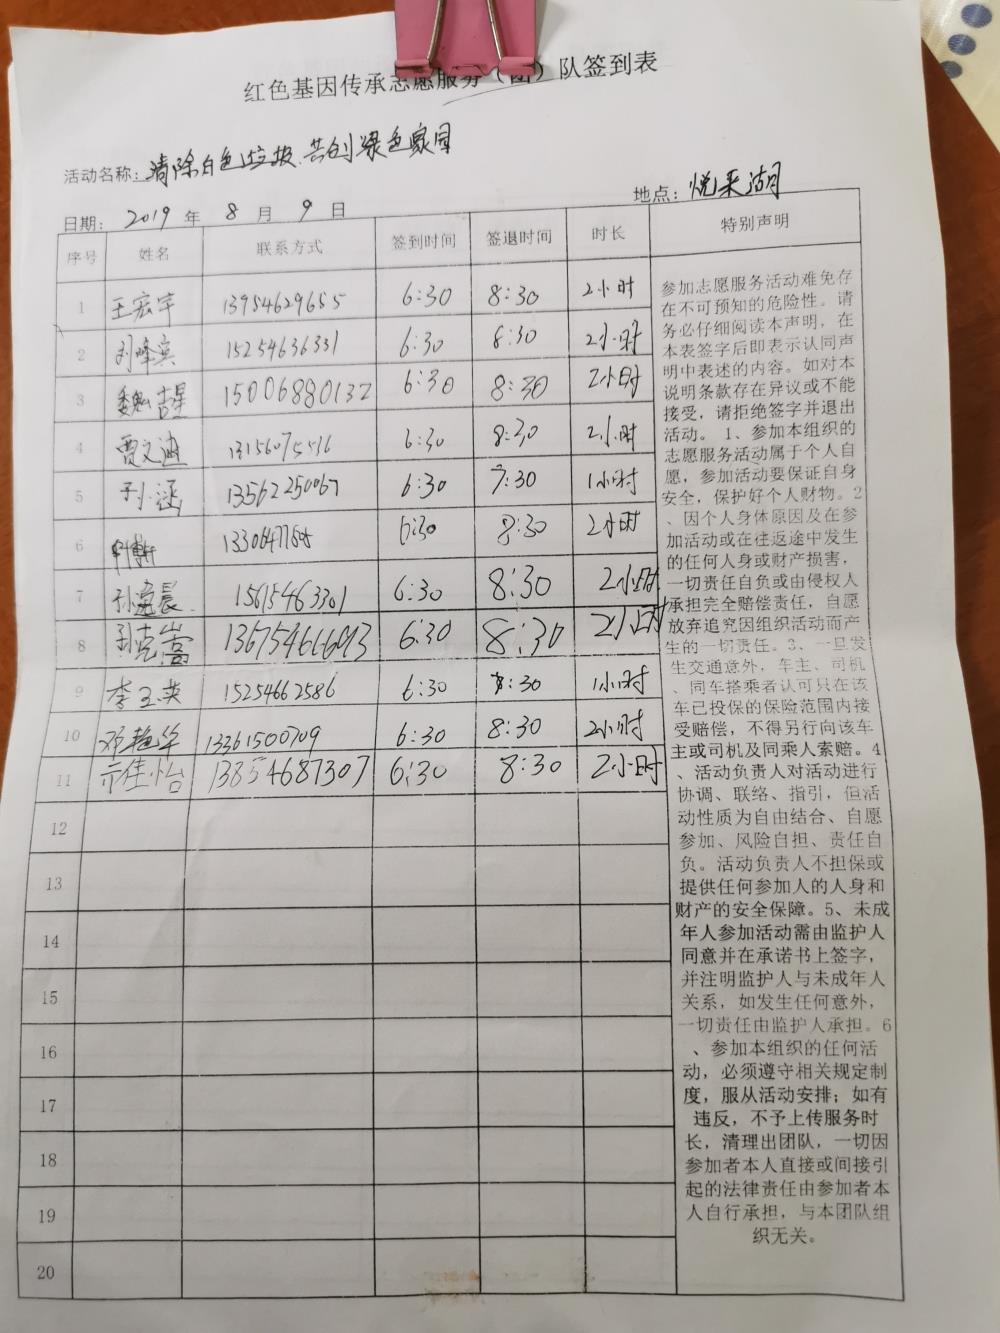 红色基因传承志愿服务（团）队签到表
活动名称：清除白色垃圾.共创绿色家园
日期： 2019 年 8 月 9 日
地点：悦来湖
序号 姓名 联系方式 签到时间 签退时间 时长 特别声明
1 王宏宇 13954629655 6:30 8:30 2小时
2 刘峰宾 15254636331 6:30 8:30 2小时
3 15006880132 6:30 8:30 2小时
4 贾文迪 13156075516 6:30 8:30 2小时
5 孙小涵 13562250067 6:30 7:30 1小时
6 6:30 8:30 2小时
7 15615463301 6:30 8:30 2小时
8 6:30 8:30 2小时
9 李玉英 15254662586 6:30 :30 1小时
10 邓艳华 13361500709 6:30 8:30 2小时
11 亓佳怡 13854687307 6:30 8:30 2小时
12
13
14
15
16
17
18
19
20
参加志愿服务活动难免存
在不可预知的危险性。请
务必仔细阅读本声明，在
本表签字后即表示认同声
明中表述的内容。如对本
说明条款存在异议或不能
接受，请拒绝签字并退出
活动。 1、参加本组织的
志愿服务活动属于个人自
愿，参加活动要保证自身
安全，保护好个人财物。2
、因个人身体原因及在参
加活动或在往返途中发生
的任何人身或财产损害，
一切责任自负或由侵权人
承担完全赔偿责任，自愿
放弃追究因组织活动而产
生的一切责任。3、一旦发
生交通意外，车主、司机
、同车搭乘者认可只在该
车已投保的保险范围内接
受赔偿，不得另行向该车
主或司机及同乘人索赔。4
、活动负责人对活动进行
协调、联络、指引，但活
动性质为自由结合、自愿
参加、风险自担、责任自
负。活动负责人不担保或
提供任何参加人的人身和
财产的安全保障。5、未成
年人参加活动需由监护人
同意并在承诺书上签字，
并注明监护人与未成年人
关系，如发生任何意外，
一切责任由监护人承担。6
、参加本组织的任何活
动，必须遵守相关规定制
度，服从活动安排；如有
违反，不予上传服务时
长，清理出团队，一切因
参加者本人直接或间接引
起的法律责任由参加者本
人自行承担，与本团队组
织无关。